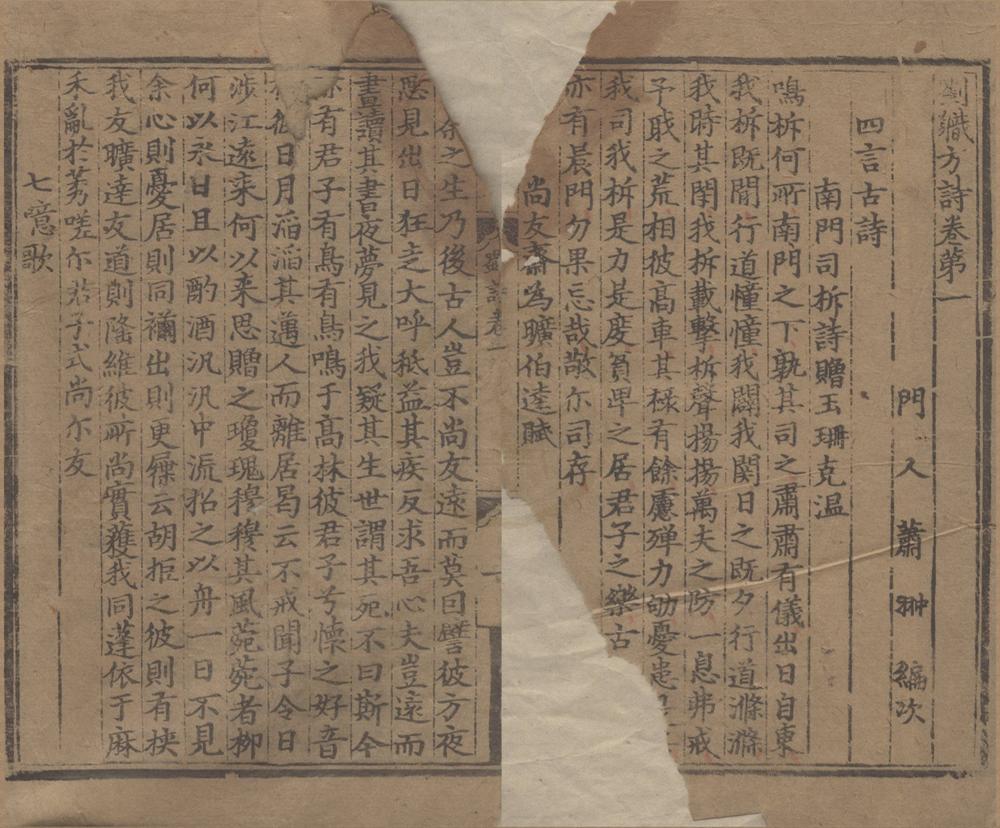 劉職方詩卷第一
門人蕭翀編次
四言古詩
南門司柝詩贈玉珊克温
鳴柝何所南門之下孰其司之肅肅有儀出日自東
我柝既閒行道憧憧我闢我関日之既夕行道滌滌
我時其閉我柝載擊柝聲揚揚萬夫之防一息弗戒
予職之荒相彼高車其禄有餘靡殫力劬憂患
我司我柝是力是度貧卑之居君子之樂古
亦有晨門勿果忘哉敬尓司存
尚友齋為曠伯逵賦
余之生乃後古人豈不尚友遠而莫曰譬彼方夜
惡見出日狂走大呼秪益其疾反求吾心夫豈遠而
晝讀其書夜夢見之我疑其生世謂其死不曰斯今
亦有君子有鳥有鳥鳴于高林彼君子兮懐之好音
彼日月滔滔其邁人而離居曷云不戒聞子令日
涉江遠来何以来思贈之瓊瑰穆穆其風菀菀者柳
何以永日且以酌酒汎汎中流招之以舟一日不見
余心則憂居則同禰出則更屧云胡拒之彼則有挾
我友曠逵友道則隆維彼所尚實蒦我同蓬依于麻
禾亂於莠嗟尓君子式尚尓友
七噫歌